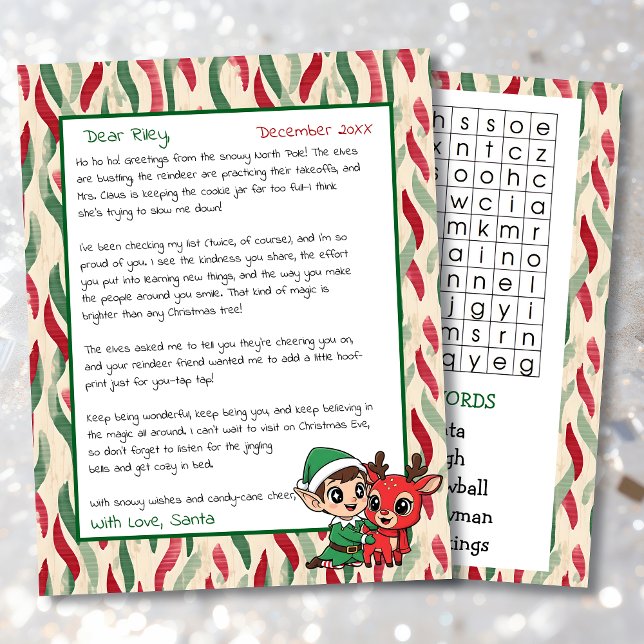 Dear Riley,
December 20XX
Ho ho ho! Greetings from the snowy North Pole! The elves
are bustling, the reindeer are practicing their takeoffs, and
Mrs. Claus is keeping the cookie jar far too full—I think
she's trying to slow me down!
I've been checking my list (twice, of course), and I'm so
proud of you. I see the kindness you share, the effort
you put into learning new things, and the way you make
the people around you smile. That kind of magic is
brighter than any Christmas tree!
The elves asked me to tell you they're cheering you on,
and your reindeer friend wanted me to add a little hoof-
print just for you-tap tap!
Keep being wonderful, keep being you, and keep believing in
the magic all around. I can't wait to visit on Christmas Eve,
so don't forget to listen for the jingling
bells and get cozy in bed.
With snowy wishes and candy-cane cheer,
With Love, Santa
h s s o e
x n t c z
s o o h c
w c i a
m k m r
a i n o
n n e l
j g y i
m s r n
q y e g
ORDS
ta
gh
wball
wman
kings